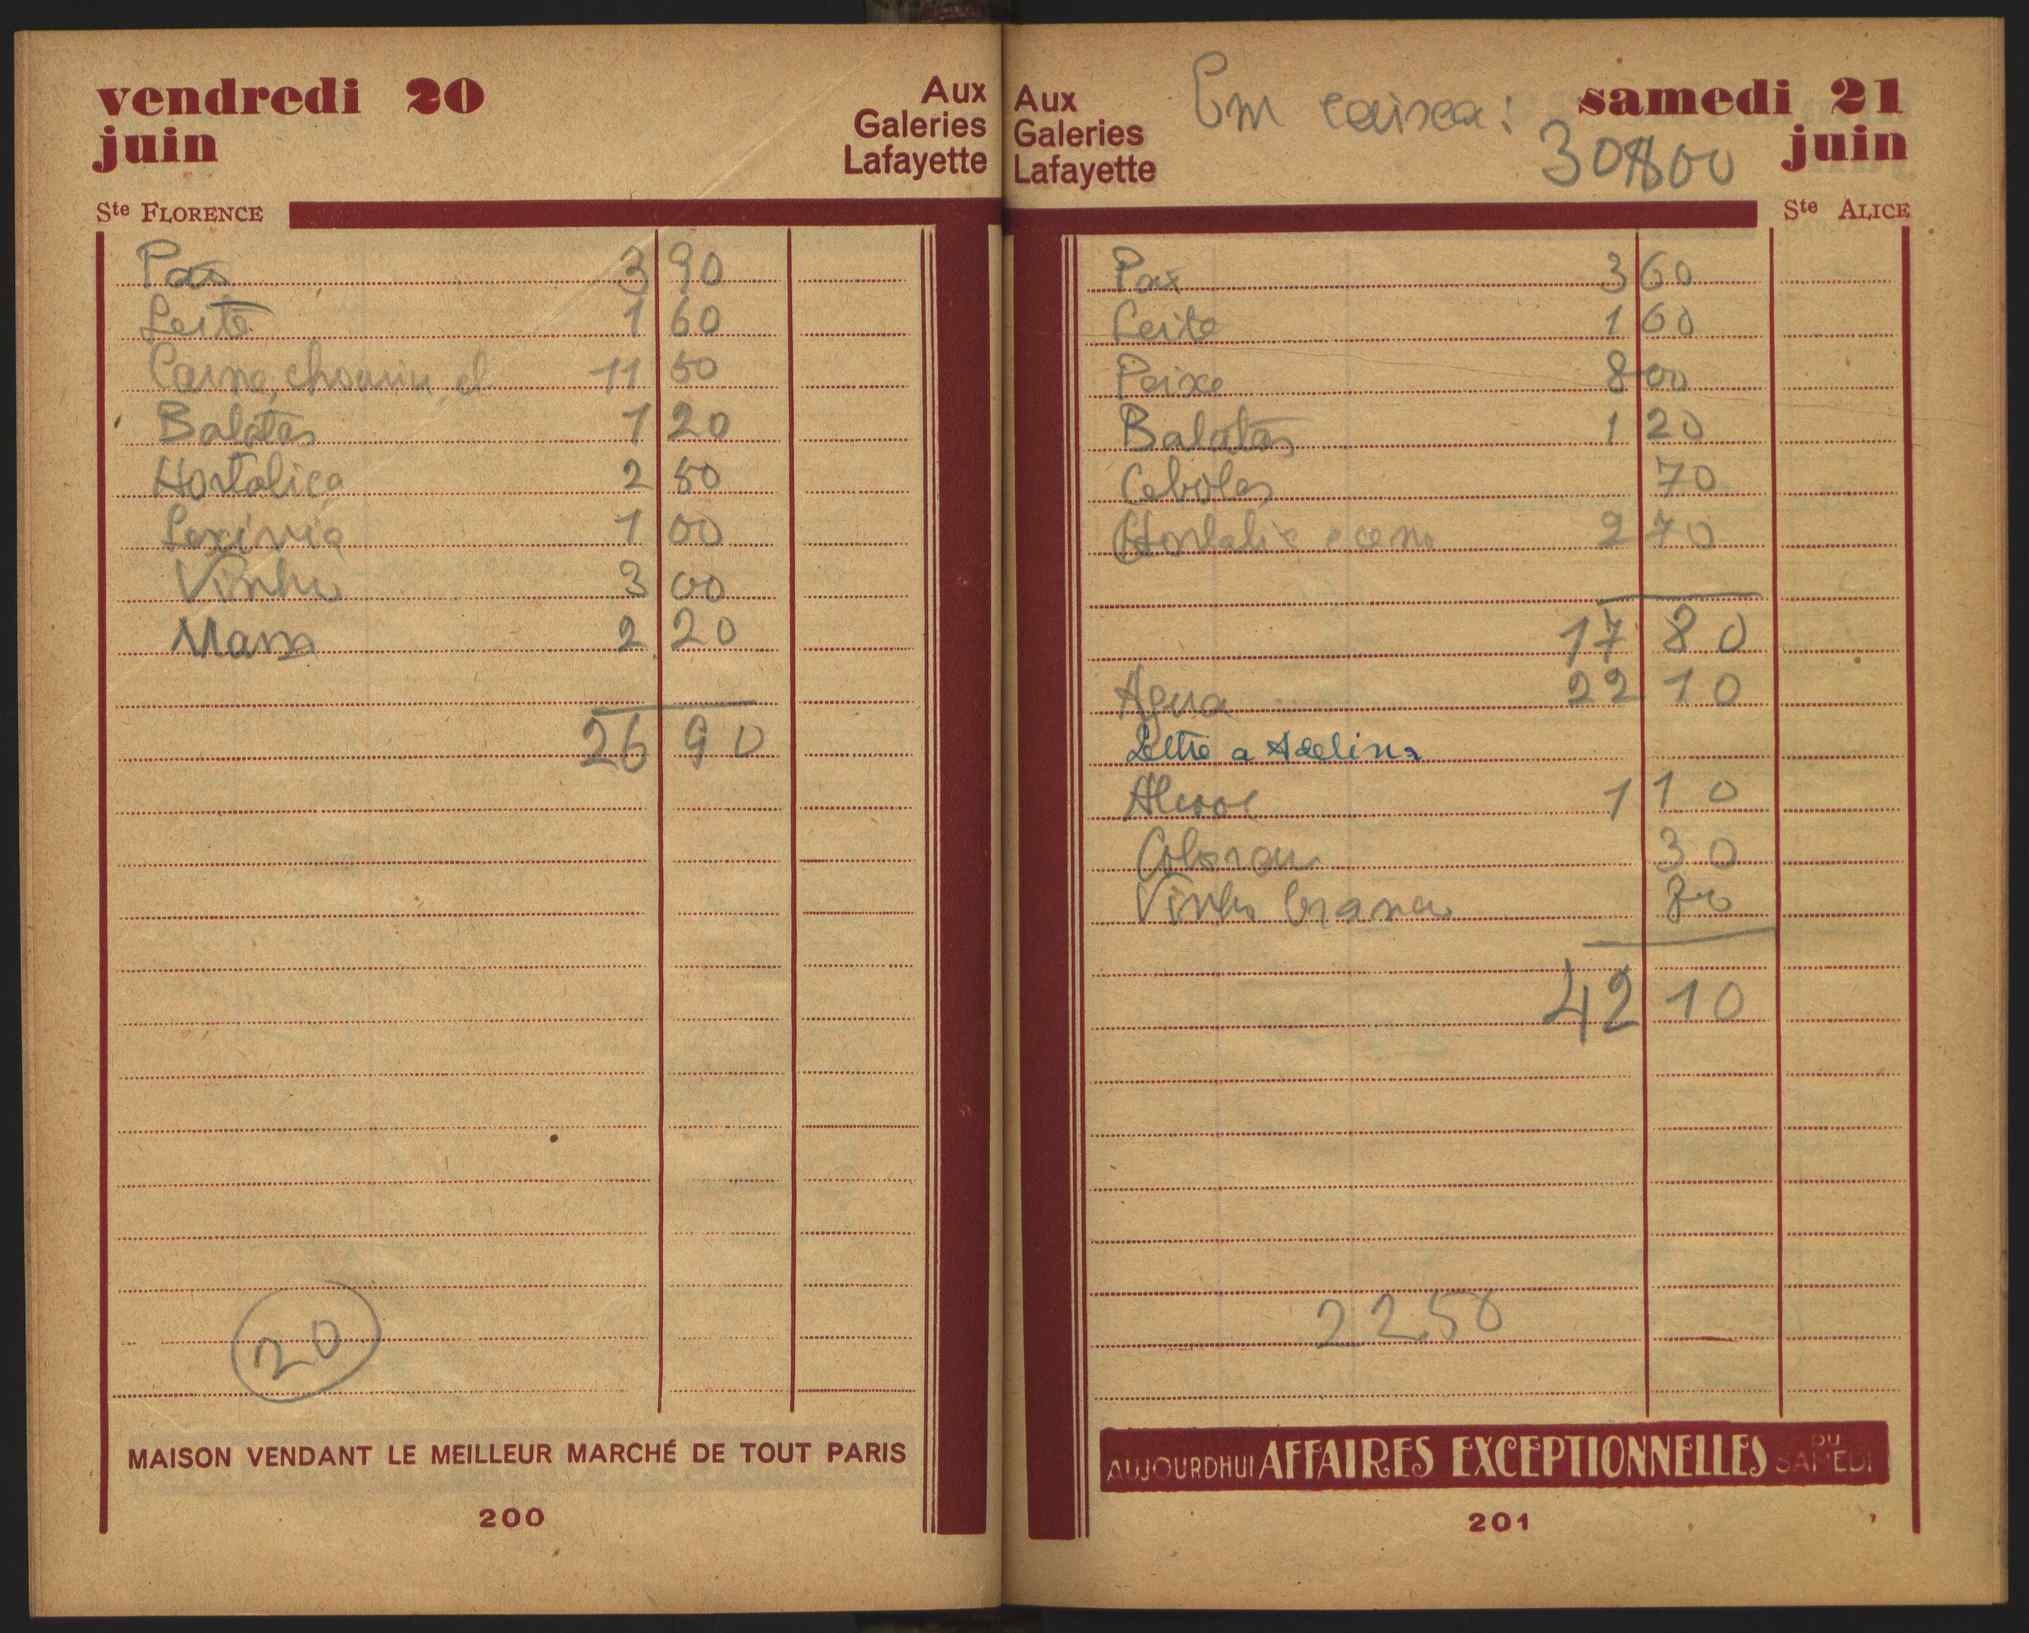 vendredi 20
juin
Aux
Galeries
Lafayette
Ste FLORENCE
Pão 3 90
Leite 1 60
Carne, chouriço, et 11 50
Batatas 1 20
Hortaliça 2 50
Lexívia 1 00
Vinho 3 00
Massa 2 20
26 90
20
MAISON VENDANT LE MEILLEUR MARCHÉ DE TOUT PARIS
200
Aux
Galeries
Lafayette
Em caixa:
30$00
samedi 21
juin
Ste ALICE
Pão 3 60
Leite 1 60
Peixe 8 00
Batatas 1 20
Cebolas 70
Hortaliç e 2 70
17 80
Agua 22 10
Lettre a Adelina
Alcool 1 10
Colorau 30
Vinho branco 80
42 10
22 50
AUJOURDHUI AFFAIRES EXCEPTIONNELLES DU SAMEDI
201